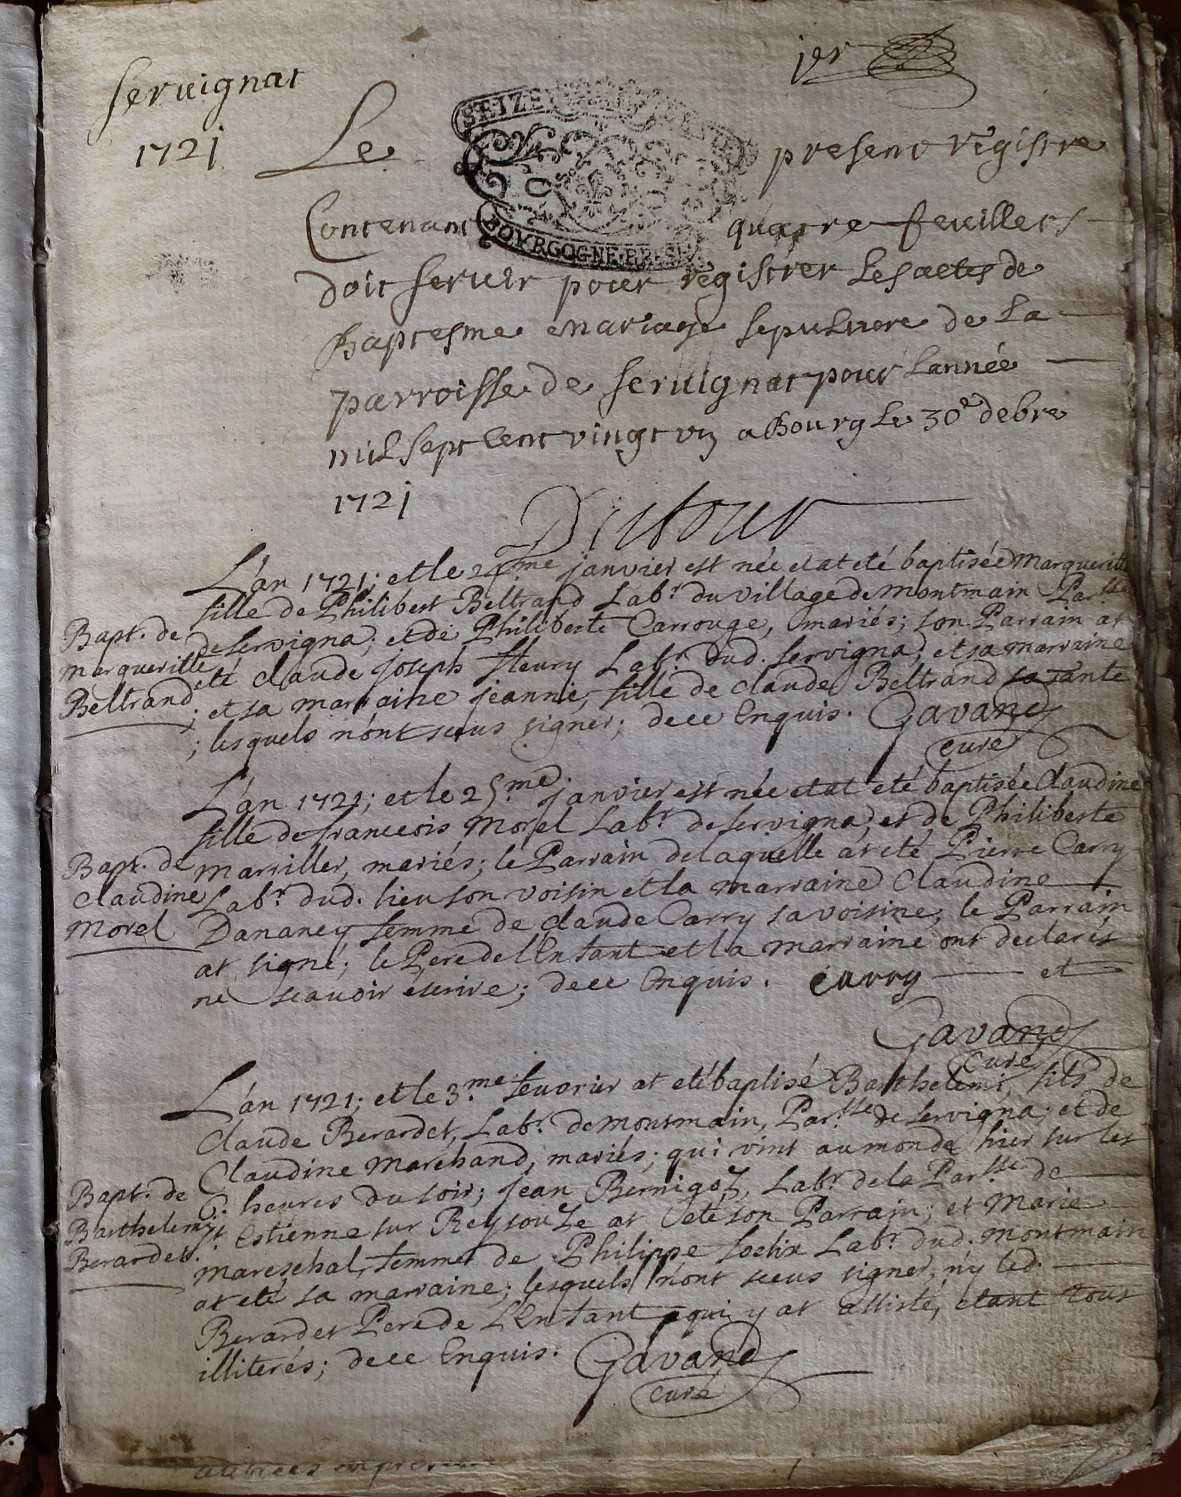 Servignat
1721
1er
SEIZE
BOURGOGNE BRESSE
Le present registre
Contenant quatre feuillets
doit servir pour registrer les actes de
Baptesme mariage sepulture de la
parroisse de servignat pour lannée
mil sept cent vingt un a Bourg le 30e debre
1721
L'an 1721; et le janvier est née et at eté baptisée Margueritte
fille de Philibert Beltrand Labr. du village de montmain Parsse
de servigna; et de Philiberte Carrouge, mariés; son Parrain at
eté claude joseph fleury Labr. dud. servigna; et sa marraine
; et sa marraine jeanne, fille de claude Beltrand sa tante
; lesquels n'ont sceus signer; de ce Enquis. Gavand
curé
Bapt. de
marguerille
Beltrand
L'an 1721; et le 25.me janvier est née et at eté baptisée claudine
fille de francois Morel Labr. de servigna, et de Philiberte
marviller, mariés; le Parrain de laquelle at eté Pierre Carry
Labr. dud. lieu son voisin et la marraine Claudine
Dananey femme de claude Carry sa voisine; le Parrain
at signé; le Pere de l'Enfant et la marraine ont declarés
ne scavoir escrire; de ce Enquis. carry et
Gavand
curé
Bapt. de
claudine
Morel
L'an 1721; et le 3.me fevorier at eté baptisé Barthelemi, fils de
claude Berardet, Labr. de montmain, Parsse de servigna; et de
Claudine Marchand, mariés; qui vint au monde hier sur les
6. heures du soir; jean Bernigoz, Labr. de la Parsse de
st Estienne sur Reysouze at eté son Parrain; et Marie
mareschal, femme de Philippe foelix Labr. dud. montmain
at eté sa marraine; lesquels n'ont sceus signer, ny led.
Berardet Pere de L'Enfant qui y at assisté, etant tous
illiterés; de ce Enquis. Gavand
curé
Bapt. de
Barthelemy
Berardet.